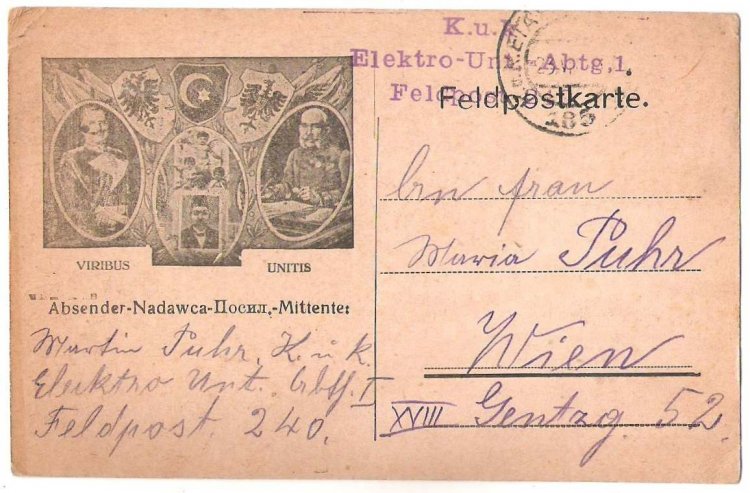 K.u.
Elektro-Unt. Abtg.1.
Feldpost
Feldpostkarte.
185
VIRIBUS UNITIS
Absender-Nadawca-Посил.-Mittente:
Martin Puhr, K. u. k.
Elektro Unt. Abtl. I
Feldpost. 240.
frau
Maria Puhr
Wien
XVIII Gentzg. 52